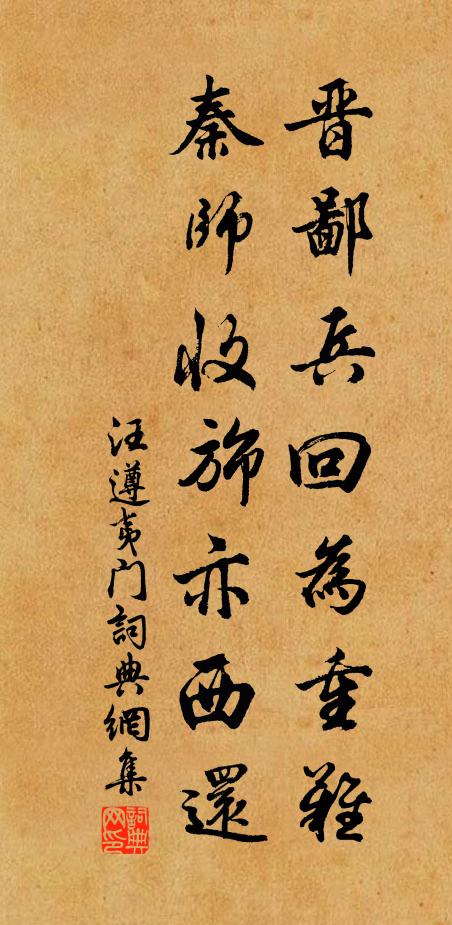 晋鄙兵回為重難
秦師收旆亦西還
汪遵夷门詞典網集
詞典网印